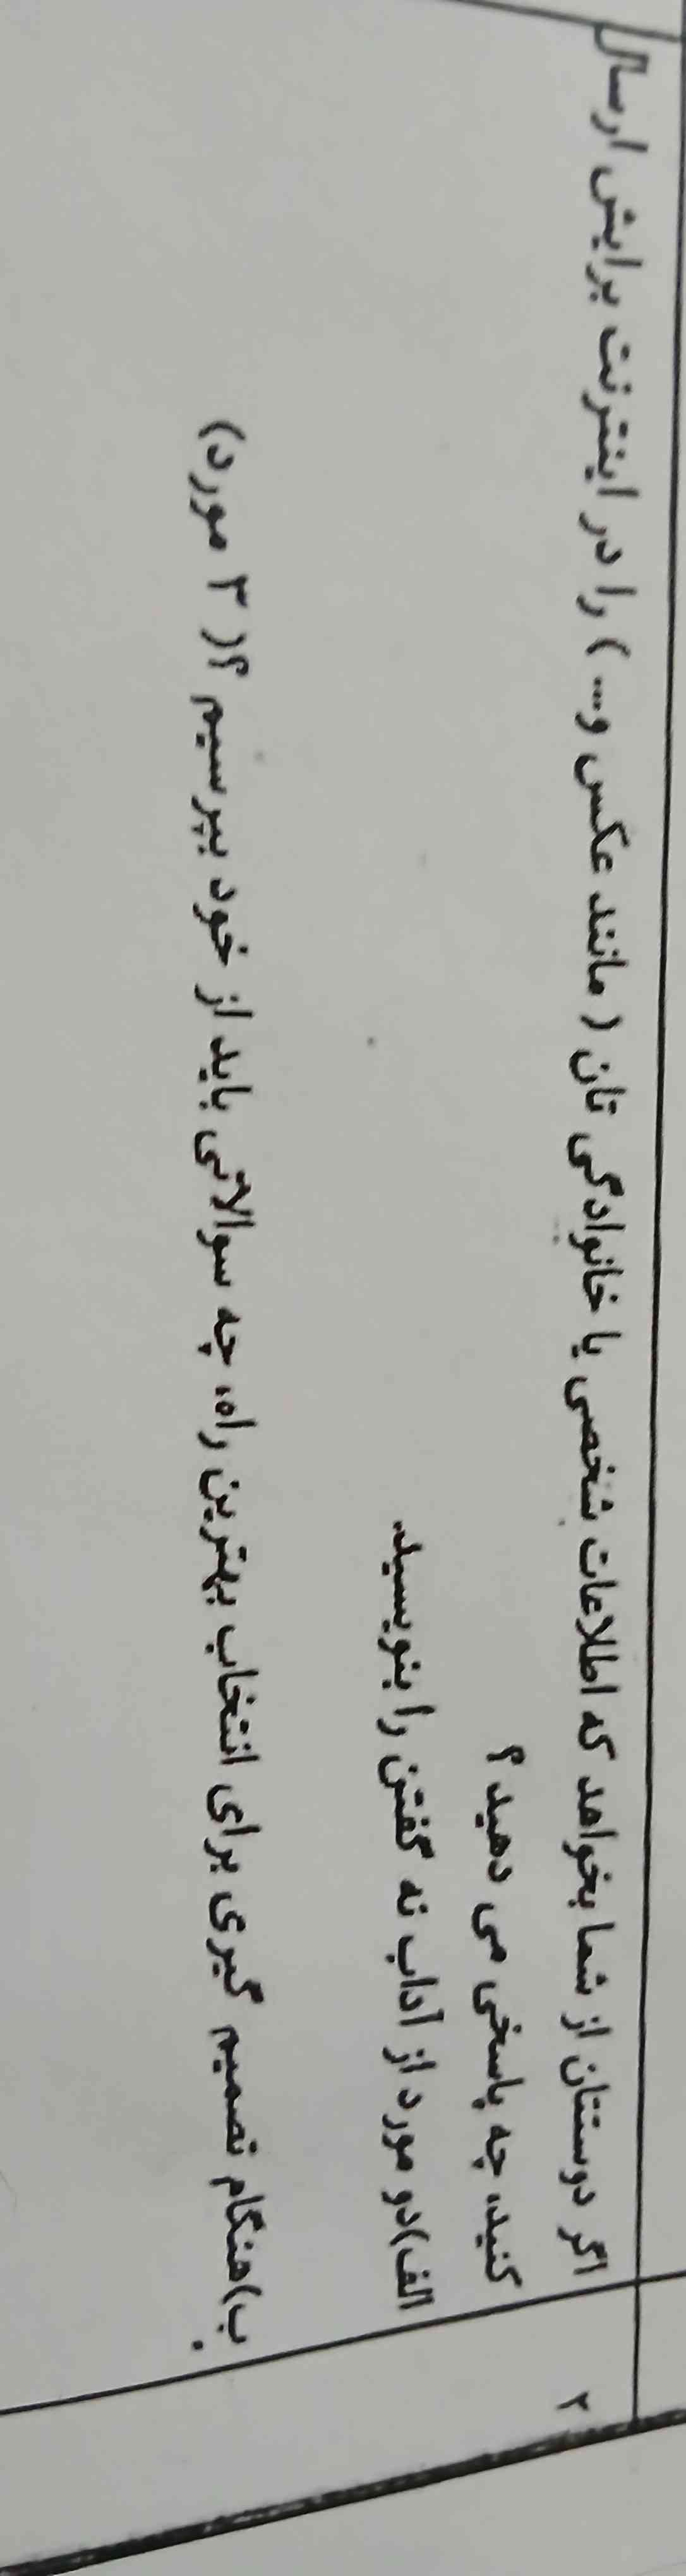 ۲
اگر دوستتان از شما بخواهد که اطلاعات شخصی یا خانوادگی تان ( مانند عکس و... ) را در اینترنت برایش ارسال
کنید، چه پاسخی می دهید ؟
الف)دو مورد از آداب نه گفتن را بنویسید.
ب)هنگام تصمیم گیری برای انتخاب بهترین راه، چه سوالاتی باید از خود بپرسیم ؟( ۳ مورد)